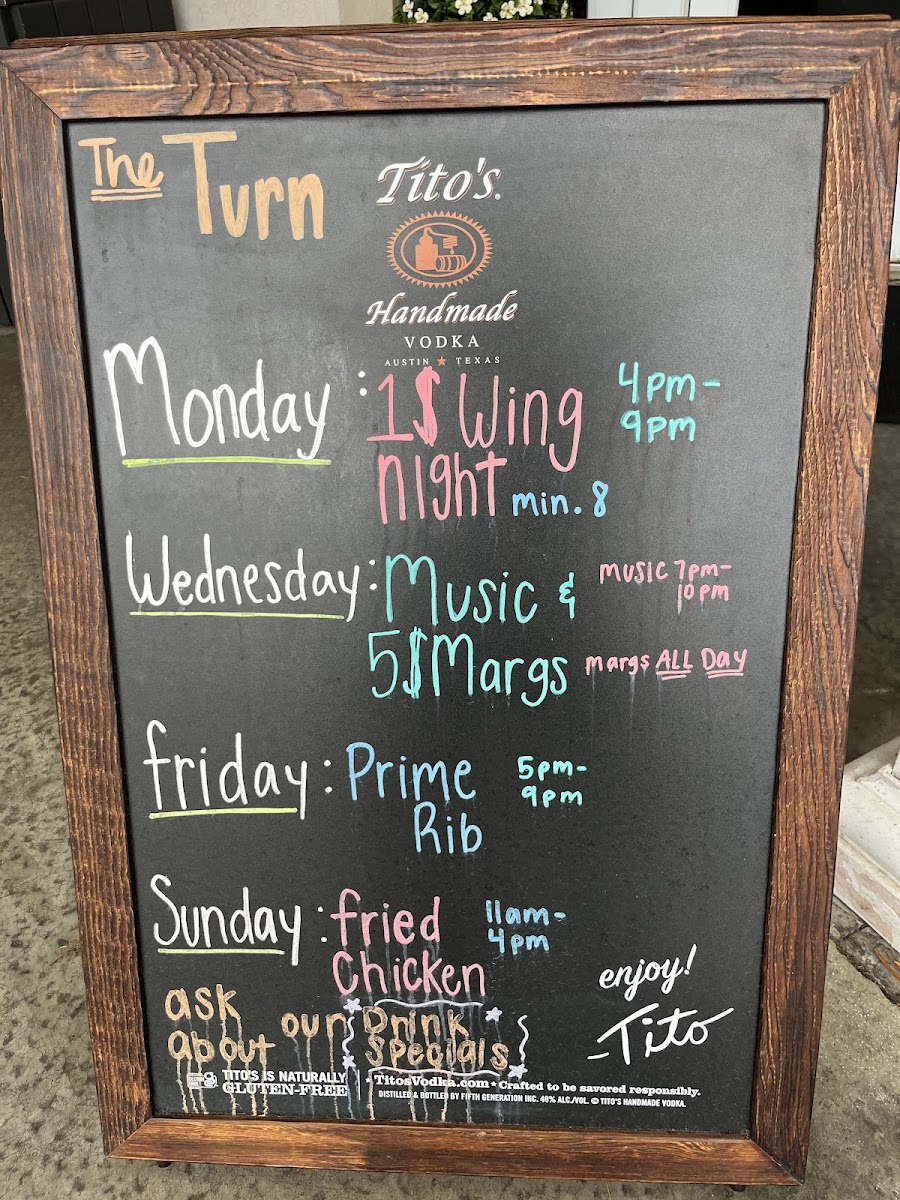 The Turn
Tito's
Handmade
VODKA
AUSTIN ★ TEXAS
Monday: 1$ Wing
night min. 8
4pm-
9pm
Wednesday: Music &
5$ Margs
Music 7pm-
10pm
margs ALL Day
friday: Prime
Rib
5pm-
9pm
Sunday: fried
Chicken
11am-
4pm
ask
about our Drink
Specials
enjoy!
-Tito
TITO'S IS NATURALLY
GLUTEN-FREE
★ TitosVodka.com ★ Crafted to be savored responsibly.
DISTILLED & BOTTLED BY FIFTH GENERATION INC. 40% ALC./VOL. © TITO'S HANDMADE VODKA.